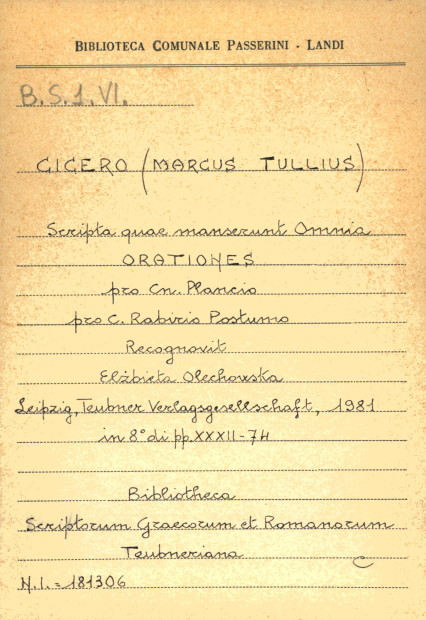 BIBLIOTECA COMUNALE PASSERINI - LANDI
B.S.1.VI.
CICERO (MARCUS TULLIUS)
Scripta quae manserunt Omnia
ORATIONES
pro Cn. Plancio
pro C. Rabirio Postumo
Recognovit
Elżbieta Olechowska
Leipzig, Teubner Verlagsgesellschaft, 1981
in 8° di pp. XXXII-74
Bibliotheca
Scriptorum Graecorum et Romanorum
Teubneriana
N.I.=181306